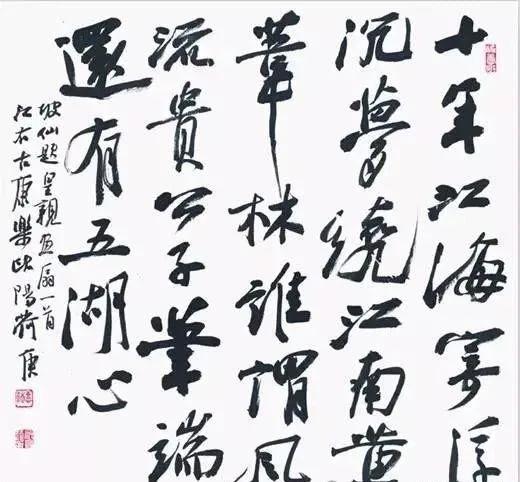 十年江海寄浮
沉夢繞江南黃
葦林誰謂風
流貴公子筆端
還有五湖心
坡仙題皇親画扇一首
江右古原樂欧陽荷庚